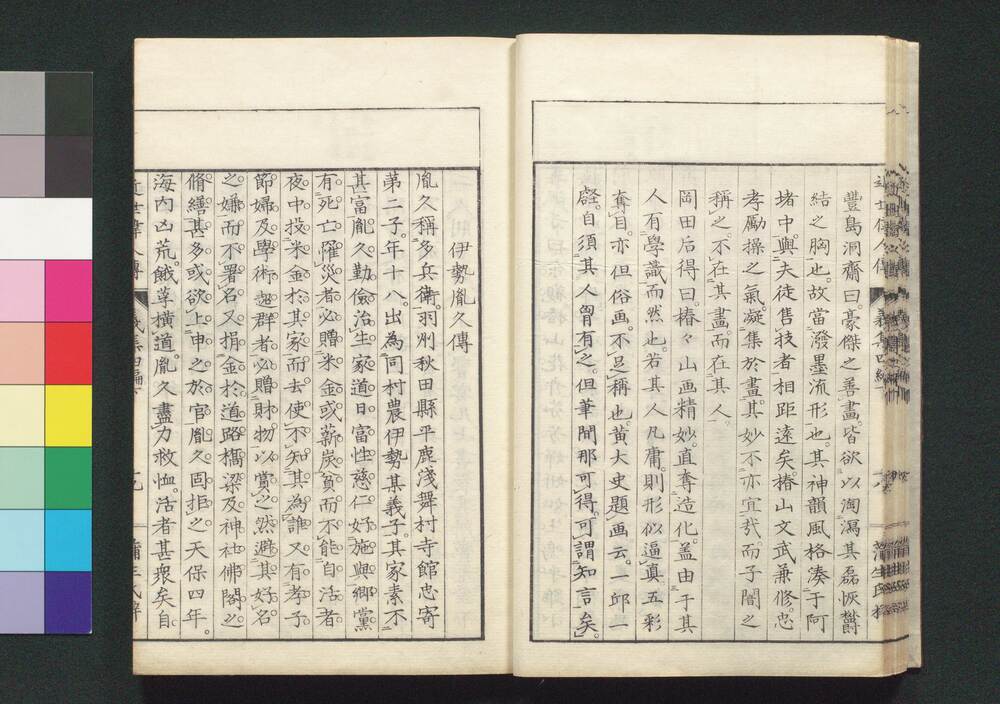 豐島洞齋曰。豪傑之善畫。皆欲以淘瀉其磊恢欝
結之胸也。故當潑墨流形也。其神韻風格湊于阿
堵中。與夫徒售技者相距遠矣。椿山文武兼修。忠
孝勵操之氣。凝集於畫。其妙不亦宜哉。而子間之
稱之。不在其畫而在其人。
岡田后得曰。椿々山画精妙。直奪造化。盖由于其
人有學識而然也。若其人凡庸。則形似逼真。五彩
奪目。亦但俗画。不足稱也。黄大史題画云。一邱一
壑。自須其人胷有之。但筆間那可得。可謂知言矣。
伊勢胤久傳
胤久稱多兵衛。羽州秋田縣平鹿淺舞村寺館忠寄
第二子。年十八。出為同村農伊勢某義子。其家素不
甚富。胤久勤儉治生。家道日富。性慈仁好施與。鄉黨
有死亡罹災者。必贈米金或薪炭。貧而不能自活者。
夜中投米金於其家而去。使不知其為誰。又有孝子
節婦及學術超群者。必贈財物以賞之。然避其好名
之嫌而不署名。又捐金於道路橋梁及神社佛閣之
脩繕甚多。或欲上申之於官。胤久固拒之。天保四年。
海内凶荒。餓莩橫道。胤久盡力救恤。活者甚衆矣。自